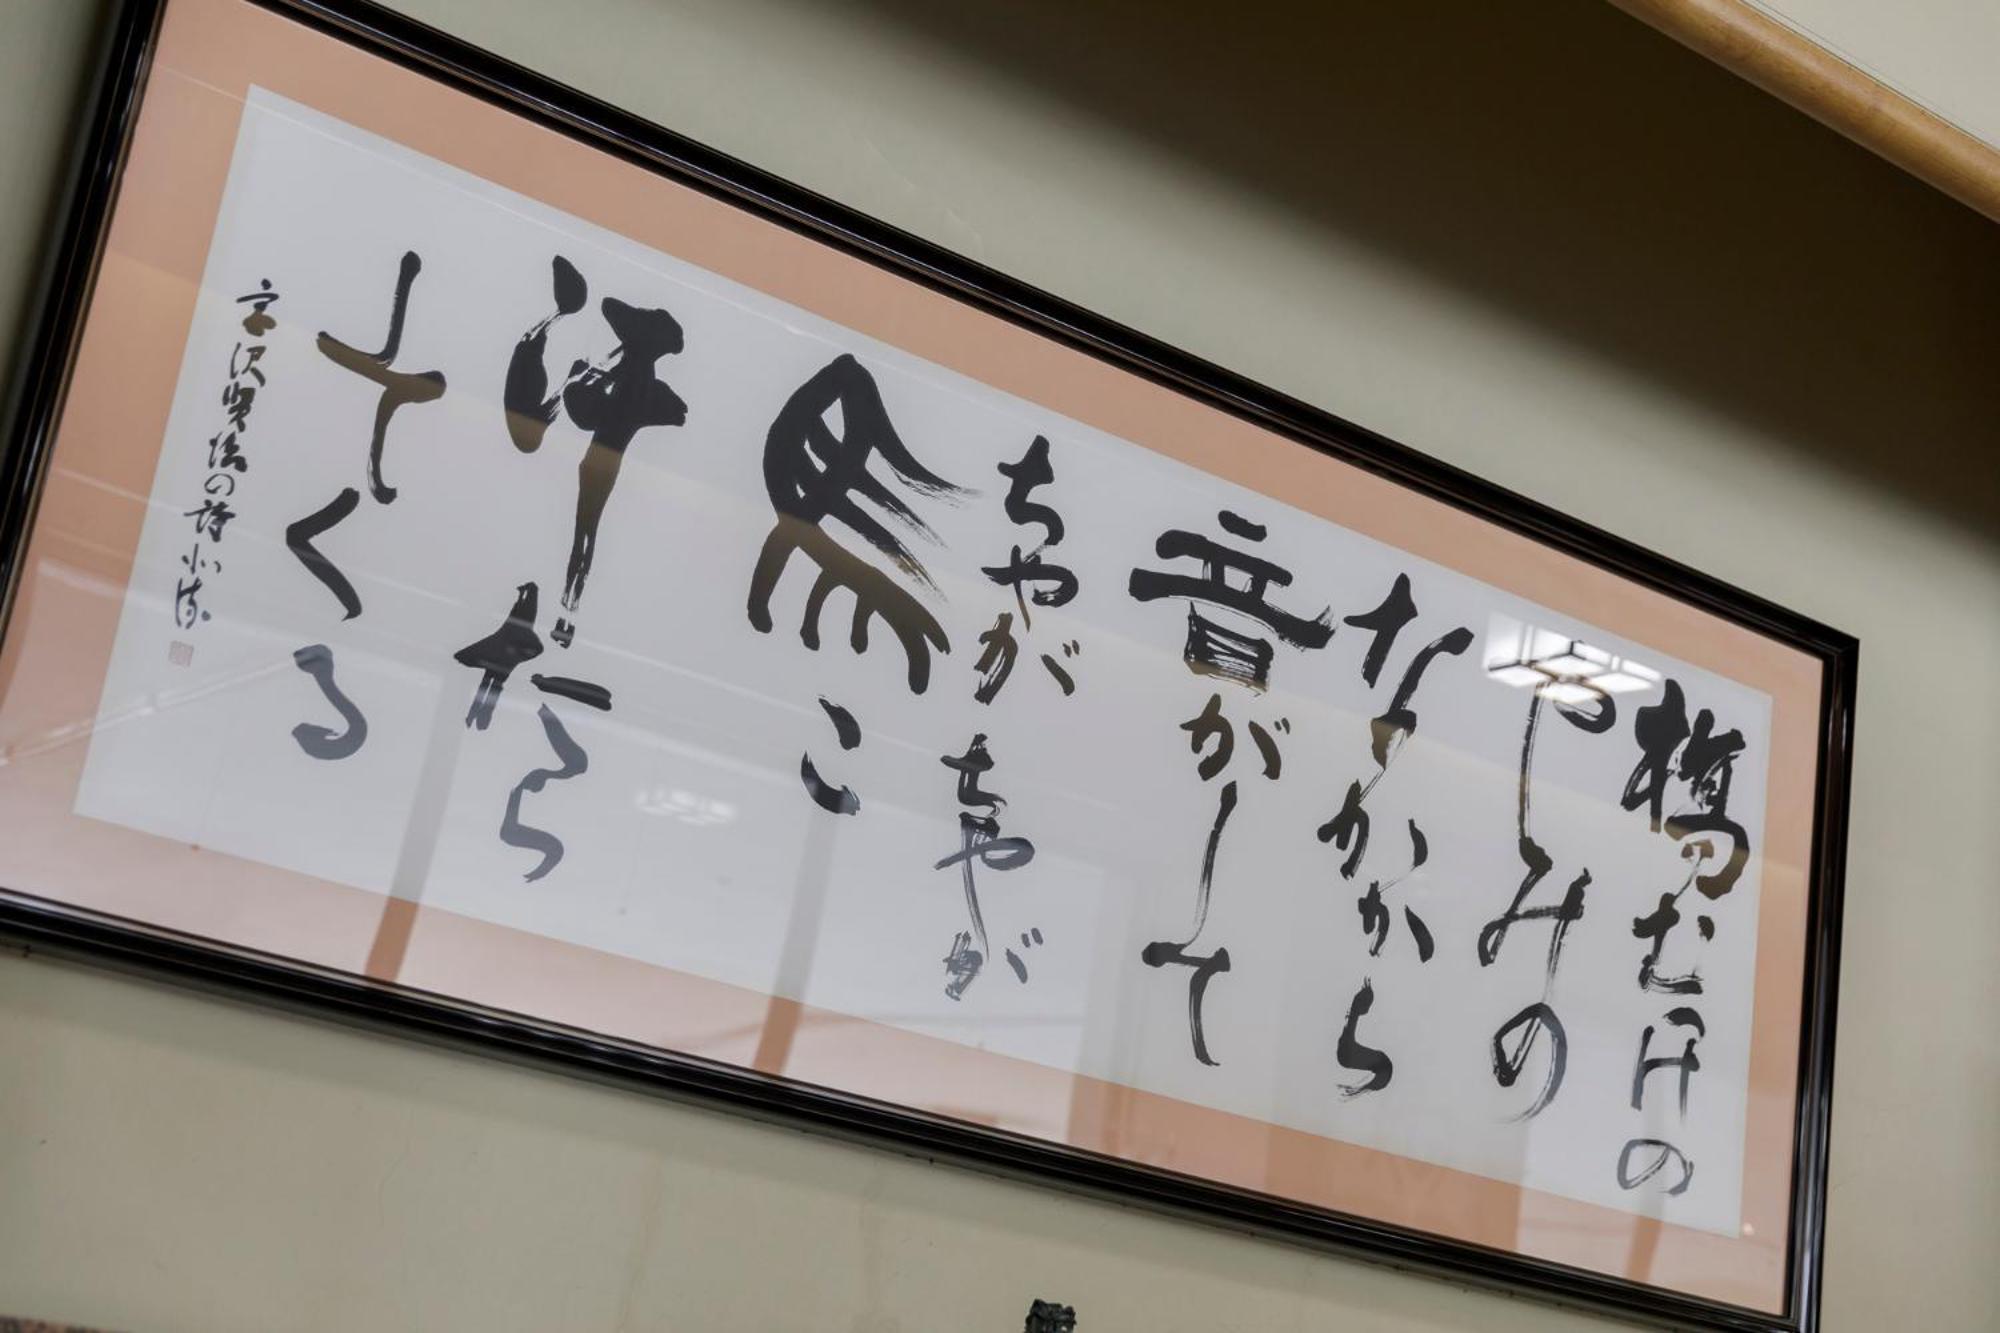 橋むけの
やみの
なかから
音がして
ちゃがちゃが
馬こ
汗たら
してくる
宮沢賢治の詩